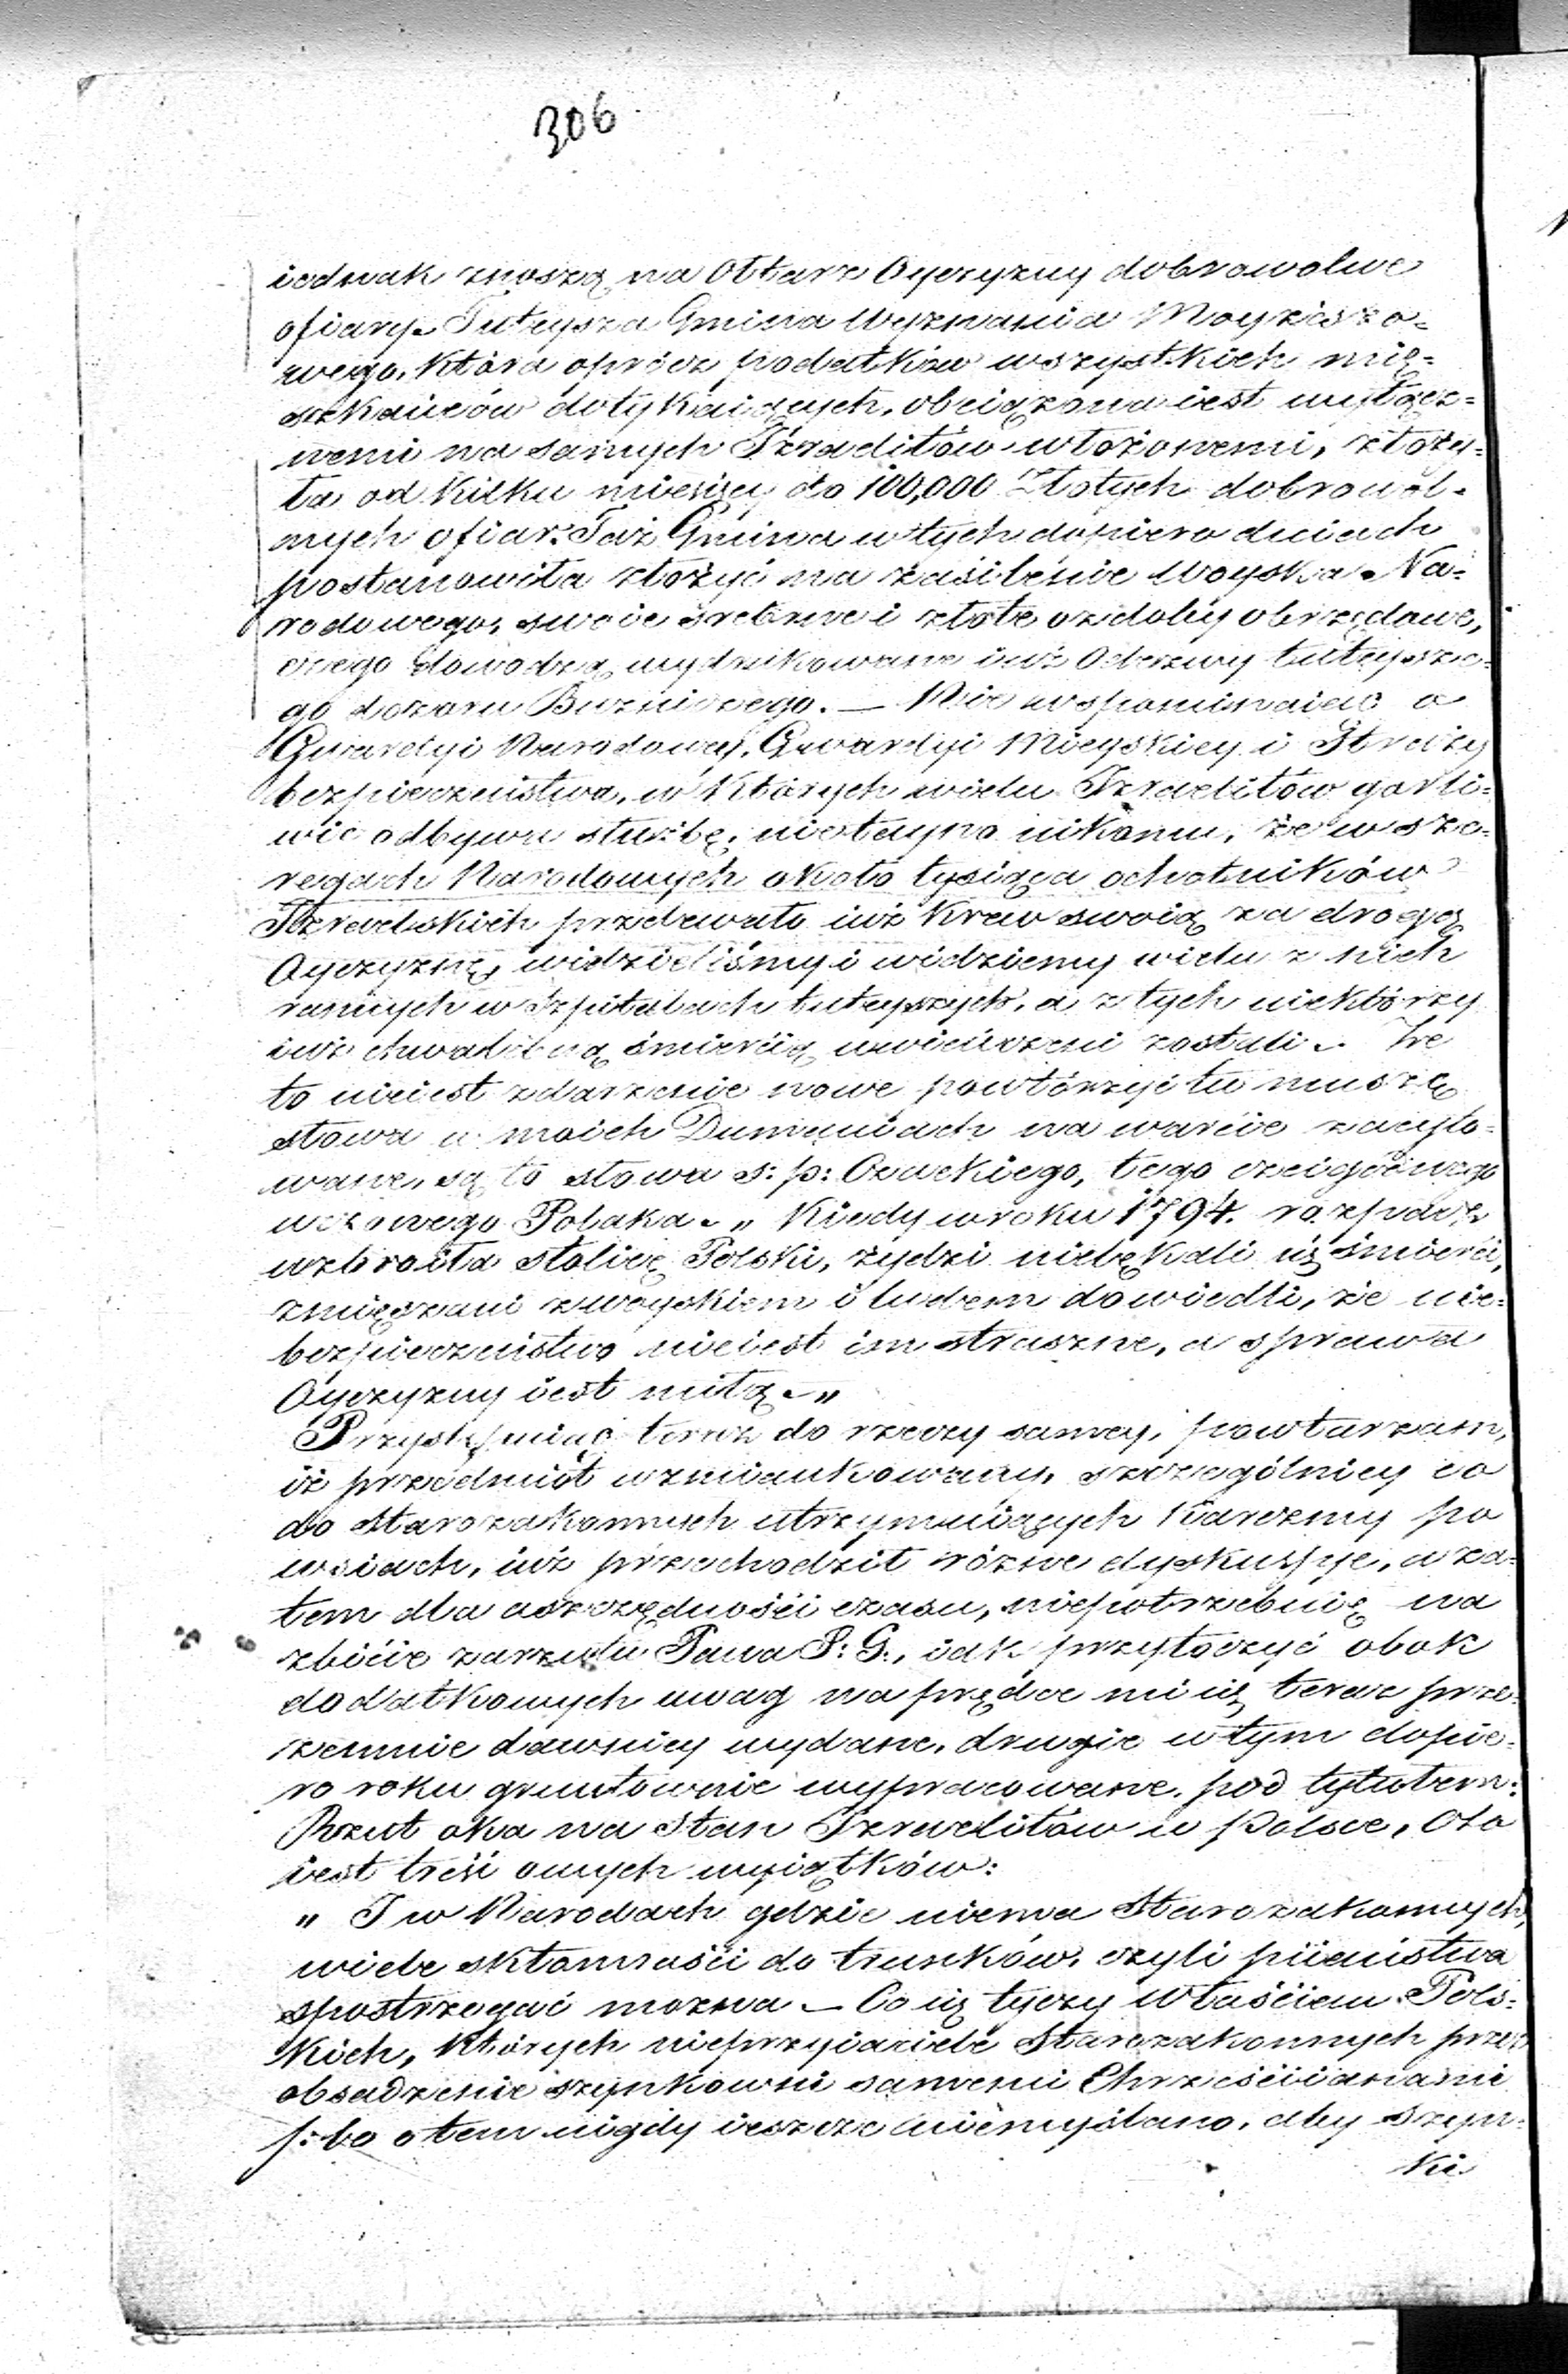 306
iednak znoszą na Ołtarz Oyczyzny dobrowolne
ofiary. Tuteysza Gmina Wyznania Moyżeszo=
wego, która oprócz podatków wszystkich mie=
szkańców dotykaiących, obciążona iest wyłącz=
nemi na samych Izraelitów włożonemi, złoży=
ła od kilku miesięcy do 100,000 Złotych dobrowol=
nych ofiar. Taż Gmina w tych dopiero dniach
postanowiła złożyć na zasilenie Woyska Na=
rodowego, swoie srebrne i złote ozdoby obrzędowe,
czego dowodzą wydrukowane iuż Odezwy tuteysze=
go dozoru Bużniczego. — Nie wspominaiąc o
Gwardyi Narodowey, Gwardyi Mieyskiey i Straży
bezpieczeństwa, w których wielu Izraelitów gorli=
wie odbywa służbę, nietayno nikomu, że w sze=
regach Narodowych około tysiąca ochotników
Izraelskich przelewało iuż krew swoią za drogą
Oyczyznę, widzieliśmy i widziemy wielu z nich
rannych w Szpitalach tuteyszych, a z tych niektórzy
iuż chwalebną śmiercią uwieńczeni zostali. Że
to nieiest zdarzenie nowe powtórzyć tu muszę
słowa w moich Dumaniach na warcie zacyto=
wane, są to słowa s: p: Czackiego, tego czcigodnego
uczonego Polaka. „ Kiedy w roku 1794. rozpacz
uzbroiła stolicę Polski, żydzi nielękali się śmierci,
zmięszani z woyskiem i ludem dowiedli, że nie=
bezpieczeństwo nieiest im straszne, a sprawa
Oyczyzny iest miłą. „
Przystępuiąc teraz do rzeczy samey, powtarzam,
iż przedmiot wzmiankowany, szczególniey co
do Starozakonnych utrzymuiących Karczmy po
wsiach, iuż przechodził różne dyskussye, a za=
tem dla oszczędności czasu, niepotrzebuię na
zbicie zarzutu Pana P: G:, iak przytoczyć obok
dodatkowych uwag na prędce mi się teraz prze=
zemnie dawniey wydane, drugie w tym dopie=
ro roku gruntownie wypracowane, pod tytułem:
Rzut oka na Stan Izraelitów w Polsce, Oto
iest treść owych wyiątków:
„ I w Narodach gdzie niema Starozakonnych,
wiele skłonności do trunków, czyli piiaństwa
spostrzegać można — Co się tyczy włościan Pols=
kich, których nieprzyiaciele Starozakonnych przez
obsadzenie szynkowni samemi Chrześciianami
/: bo o tem nigdy ieszcze niemyślano, aby szyn=
ki